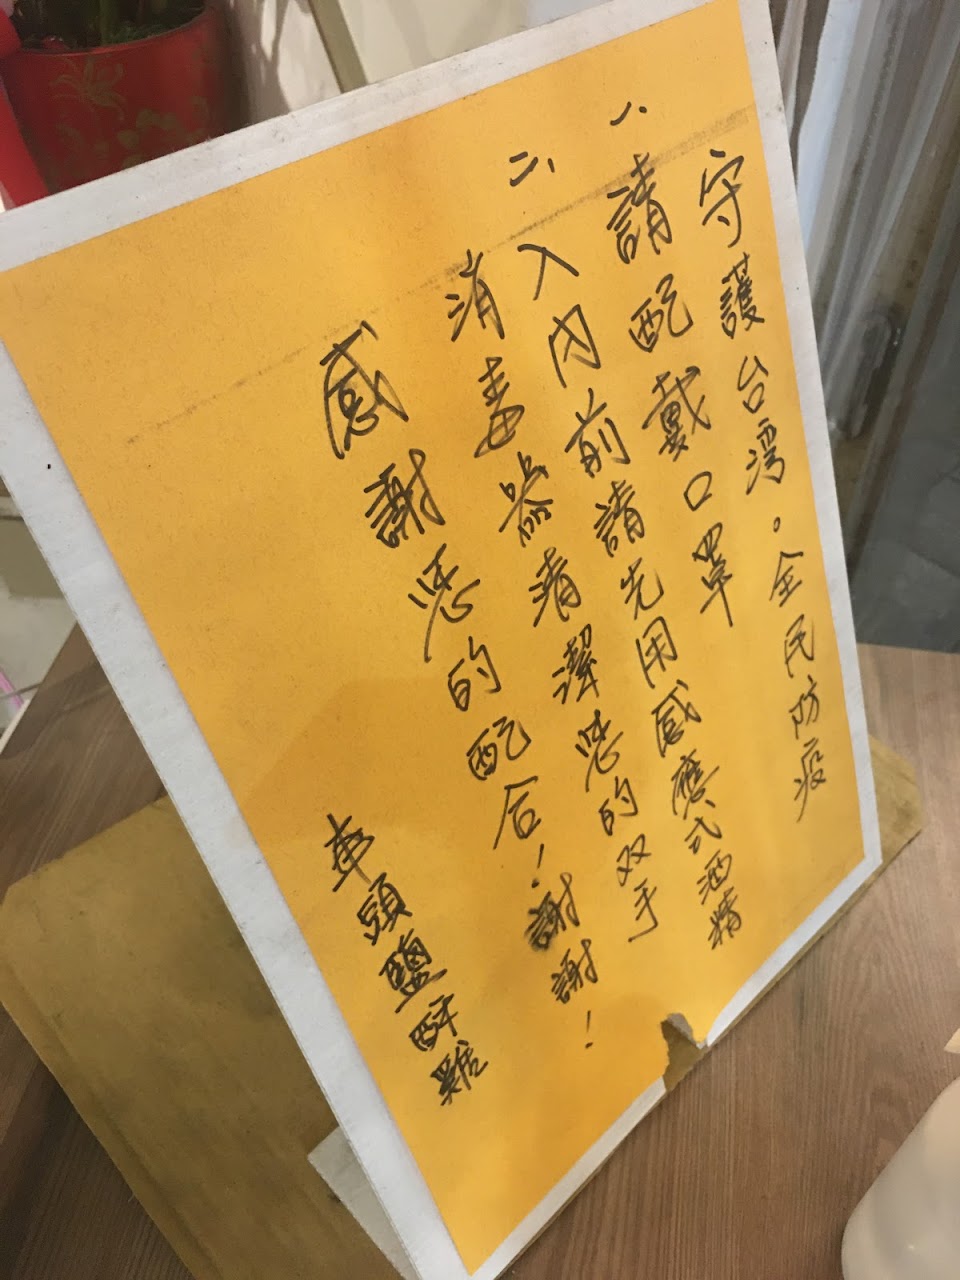 守護台湾。全民防疫
一、請配戴口罩
二、入內前請先用感應式酒精
消毒器清潔您的双手
感謝您的配合！謝謝！
車頭鹽酥雞